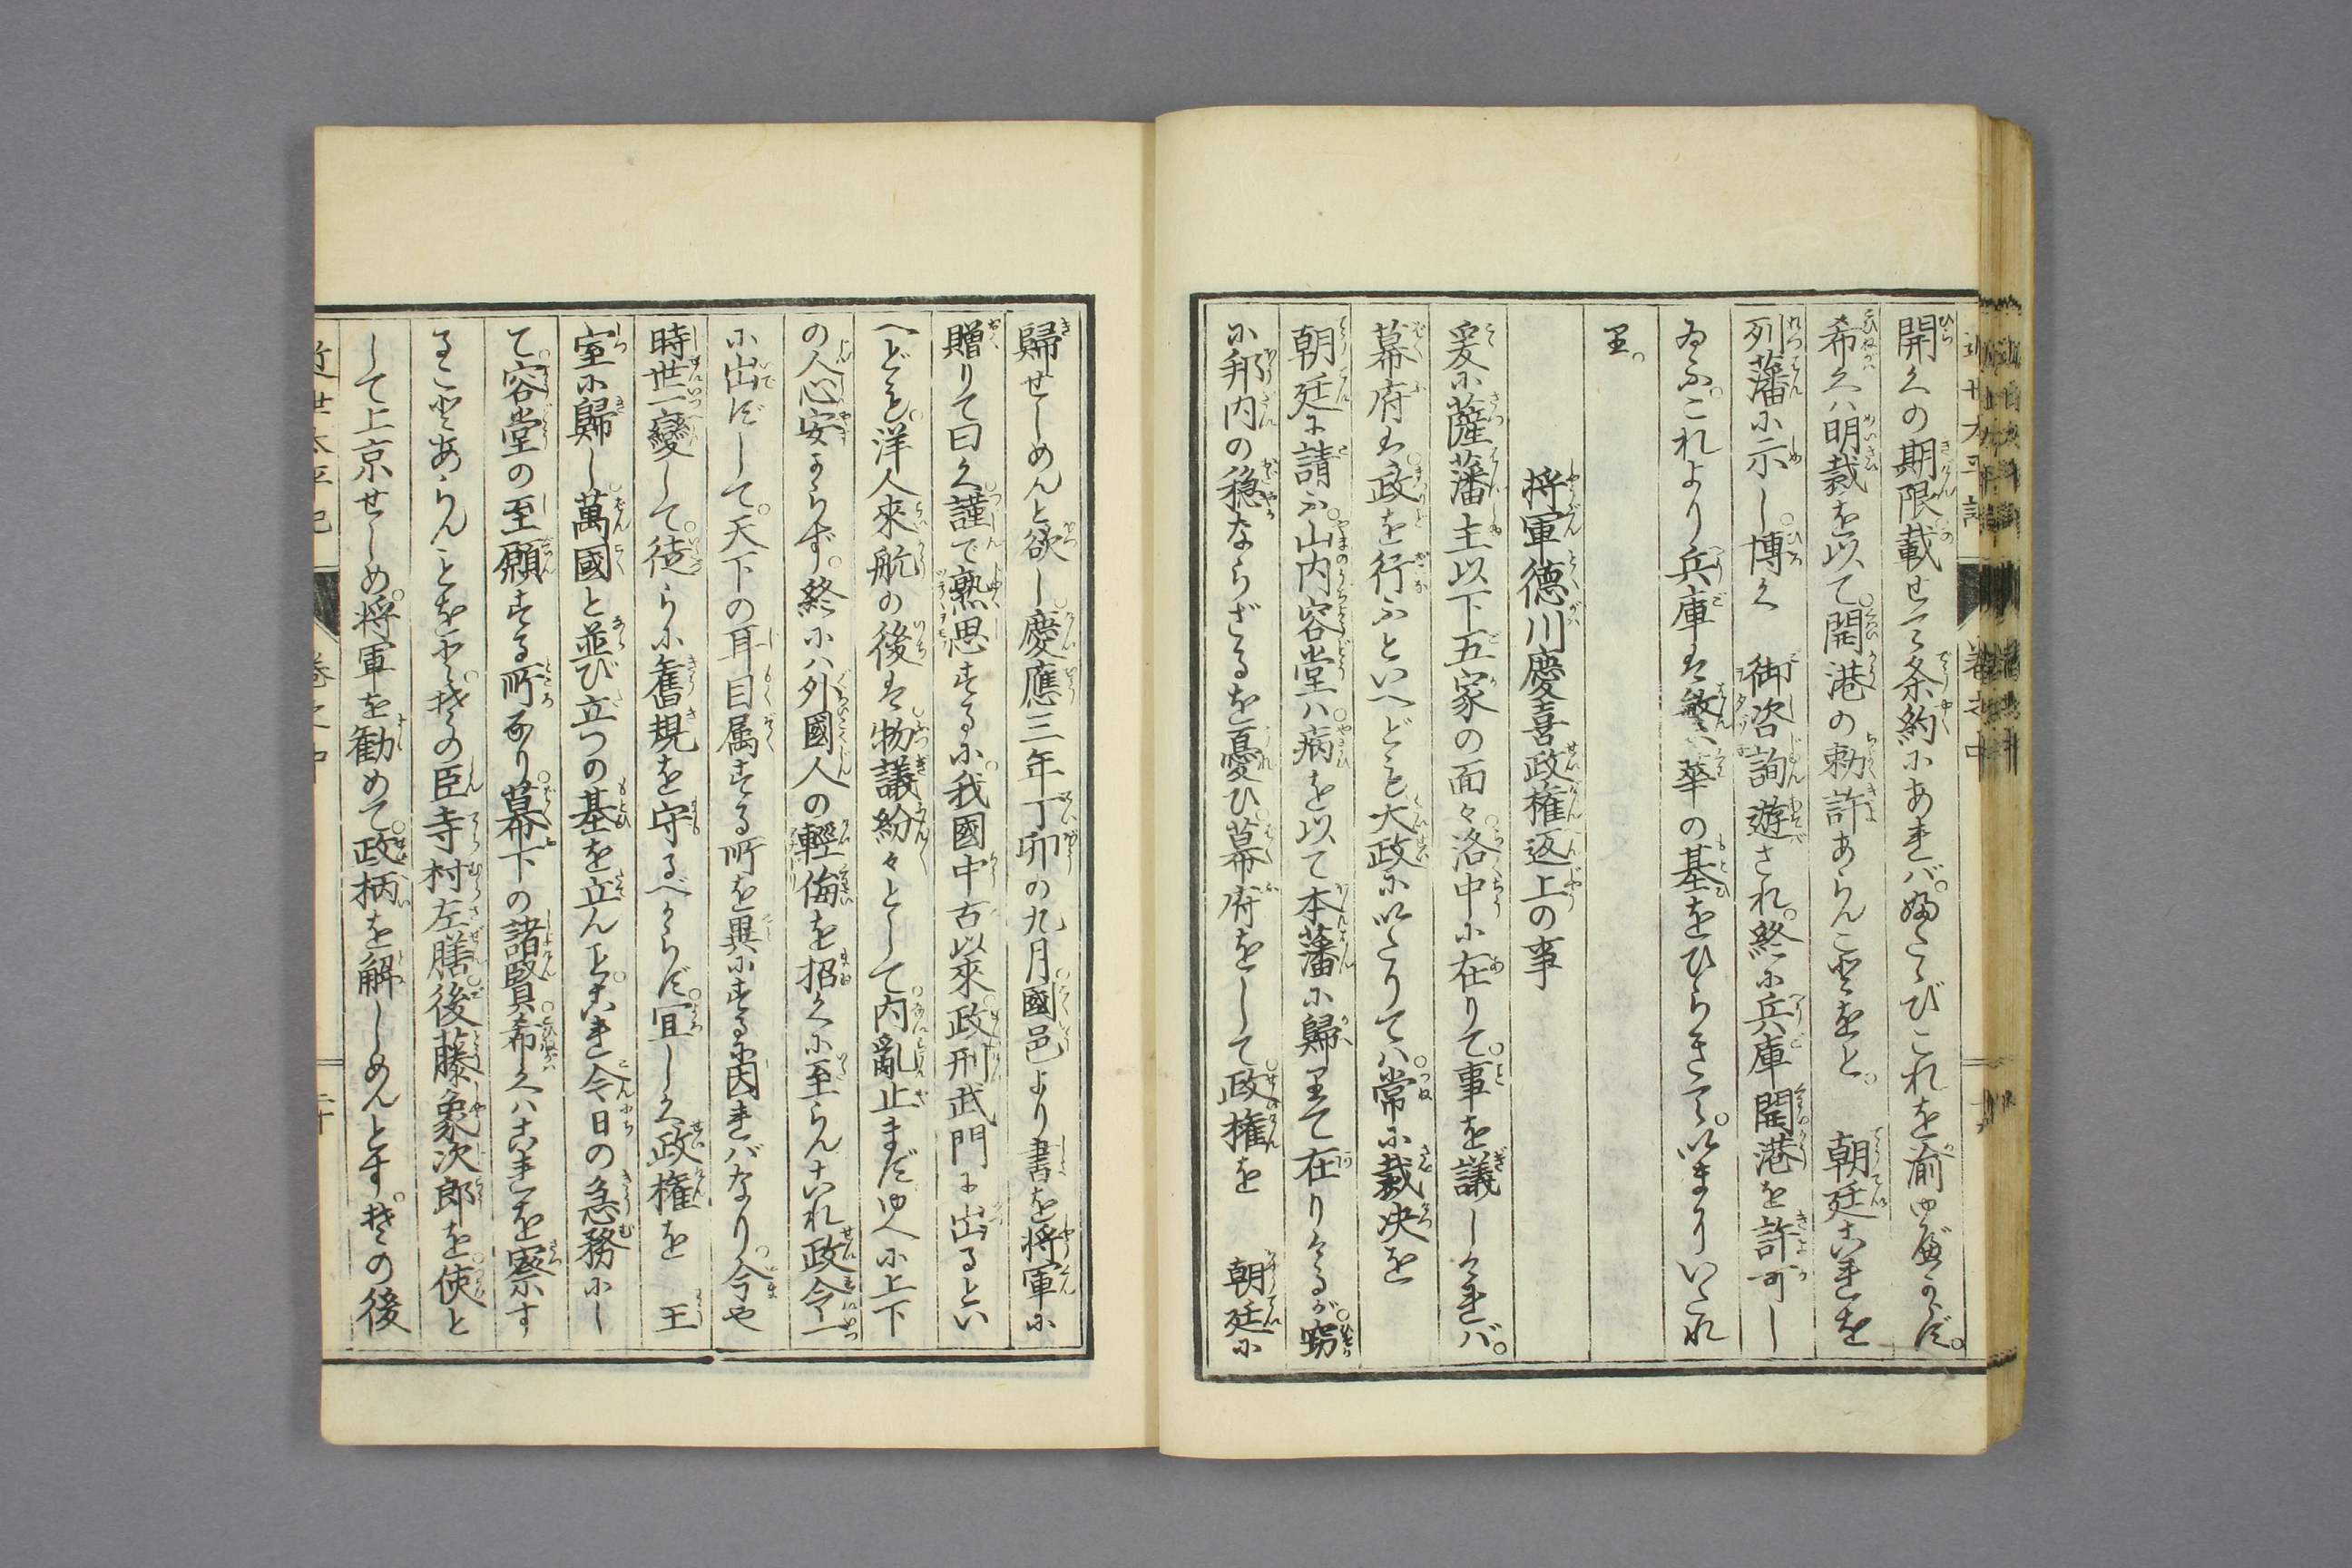 開くの期限載せて条約にあれバ。婦たゝびこれを渝ゆべからず。
希くハ明裁を以て。開港の勅許あらんことをと。　朝廷これを
列藩に示し。博く　御咨詢遊され。終に兵庫開港を許可し
ゐふ。これより兵庫は繁華の基をひらきて。いまりいたれ
り。
将軍徳川慶喜政権返上の事
爰に薩藩主以下五家の面々。洛中に在りて。事を議しければ。
幕府は。政を行ふといへども。大政にいたりてハ。常に裁决を
朝廷に請ふ。山内容堂ハ。病を以て本藩に歸りて在りけるが。窃
に邦内の穏ならざるを憂ひ。幕府をして。政権を　朝廷に
歸せしめんと欲し。慶應三年丁卯の九月。國邑より書を将軍に
贈りて曰く。謹で熟思するに。我國中古以來。政刑武門に出るとい
へども。洋人來航の後は。物議紛々として。内亂止まずゆへに上下
の人心安からず。終にハ外國人の輕侮を招くに至らんこれ政令一
に出ずして。天下の耳目属する所を異にするに因ればなり。今や
時世一變して。徒らに舊規を守るべからず。宜しく政権を　王
室に歸し。萬國と並び立つの基を立んと。これ今日の急務にし
て。容堂の至願する所なり。幕下の諸賢。希くハこれを察す
ることあらんことをと。其の臣寺村左膳。後藤象次郎を。使と
して上京せしめ。将軍を勧めて。政柄を解しめんとす。其の後
近世太平記
巻之中